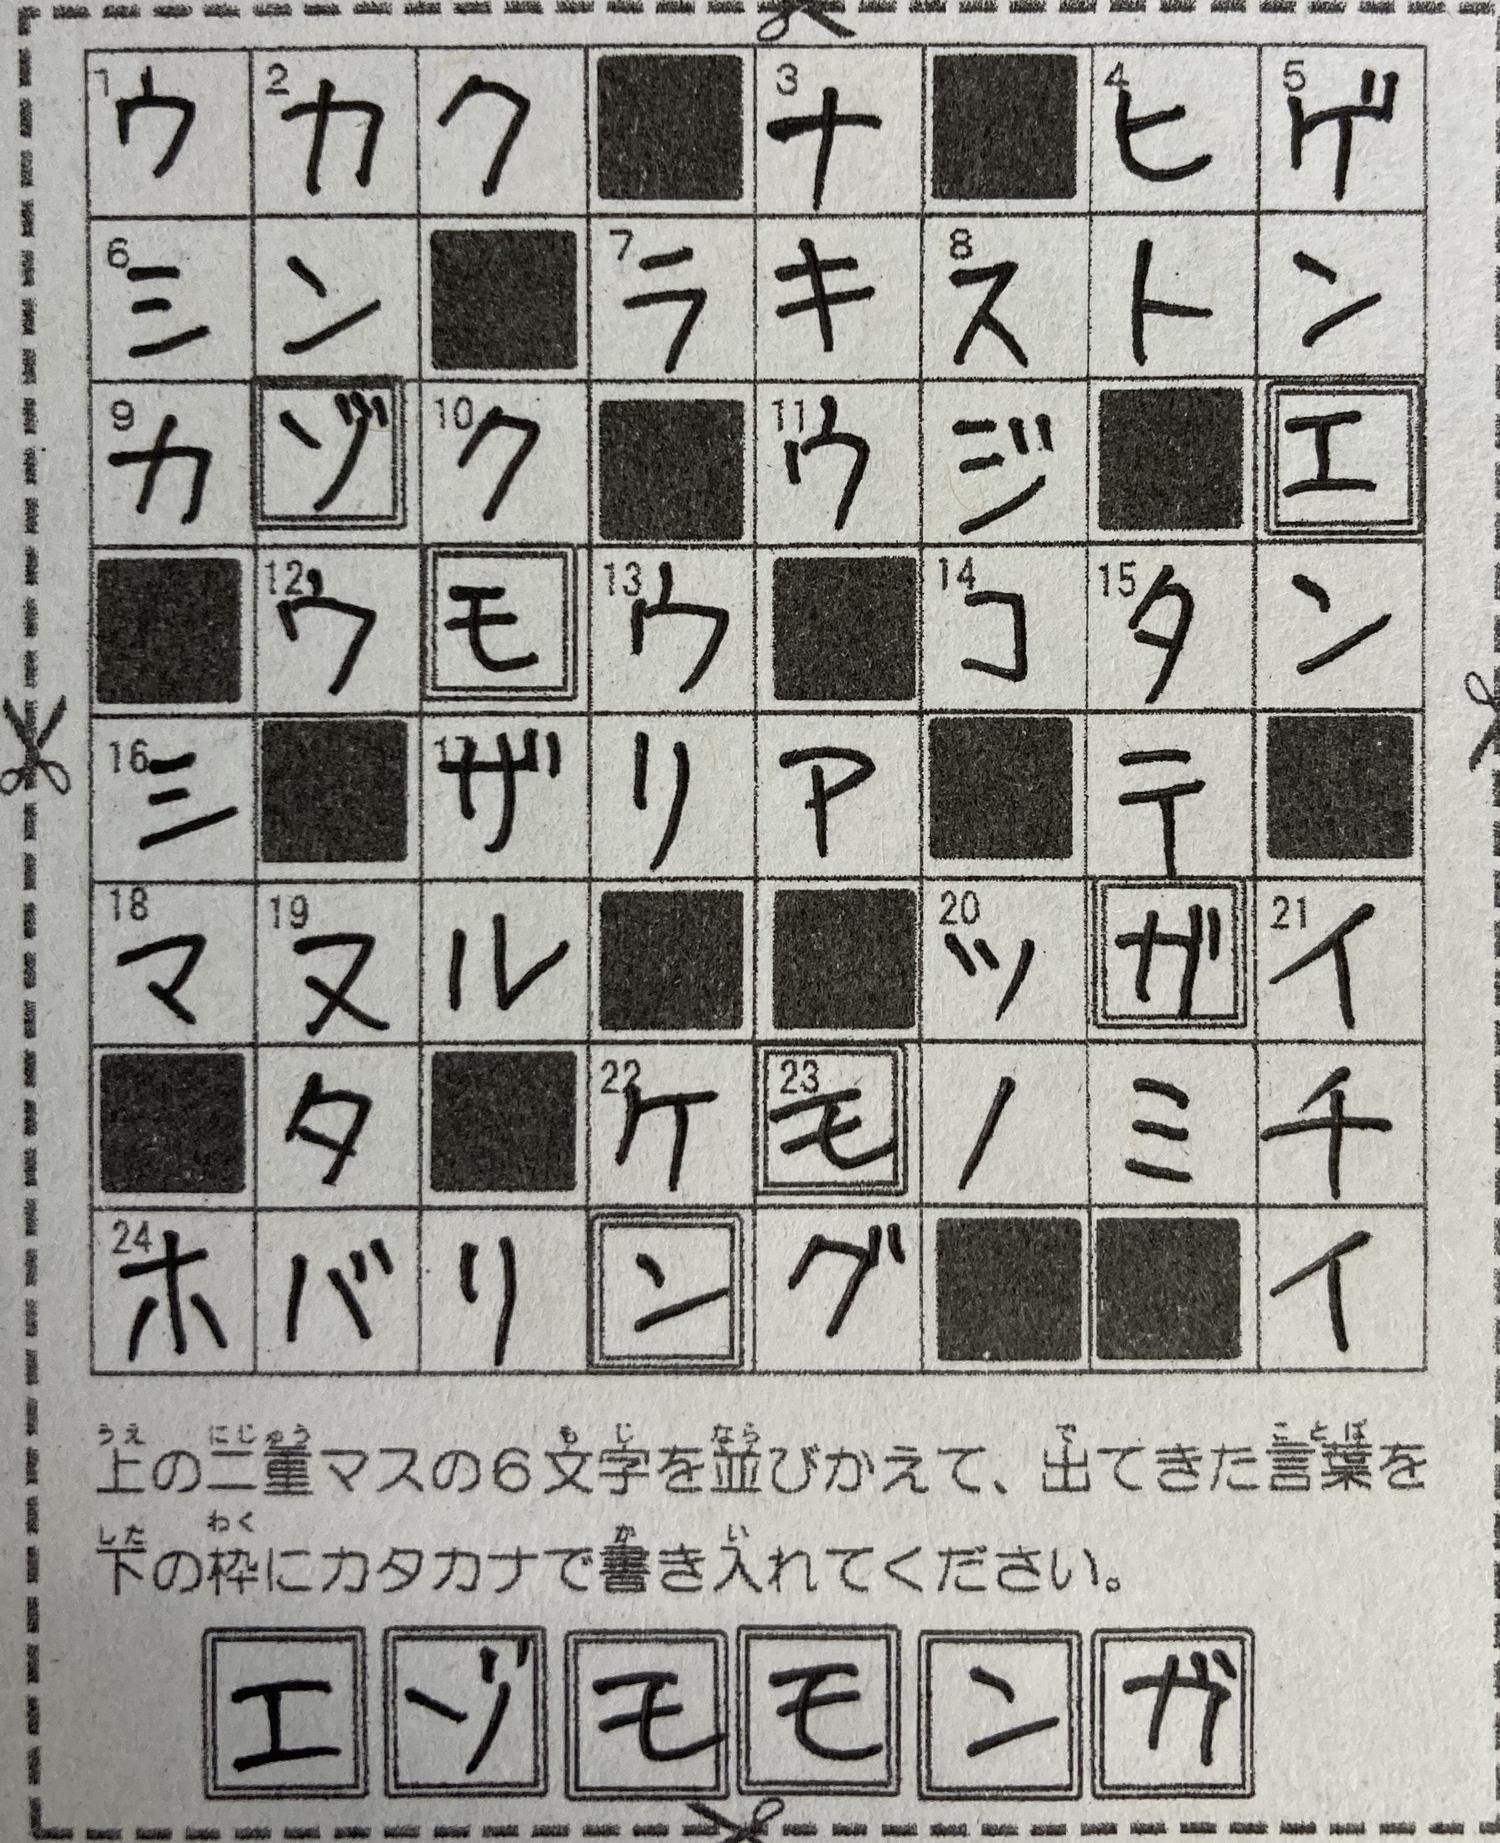 1ウ 2カ ク 3ナ 4ヒ 5ゲ
6ミ ン 7ラ キ 8ス ト ン
9カ ゾ 10ク 11ウ ジ エ
12ウ モ 13ウ 14コ 15タ ン
16シ 17ザ リ ア テ
18マ 19ヌ ル 20ツ ガ 21イ
タ 22ケ 23モ ノ ミ チ
24ホ バ リ ン グ イ
上の二重マスの6文字を並びかえて、出てきた言葉を
下の枠にカタカナで書き入れてください。
エ ゾ モ モ ン ガ